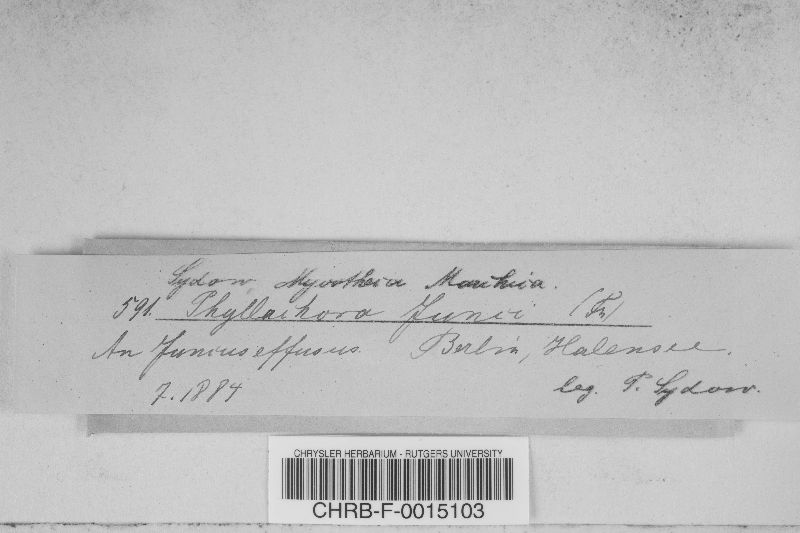 Sydow, Mycotheca Marchica.
591. Phyllachora Junci (Fr)
An Juncus effusus. Berlin, Halensee.
7. 1884 leg. P. Sydow.
CHRYSLER HERBARIUM - RUTGERS UNIVERSITY
CHRB-F-0015103